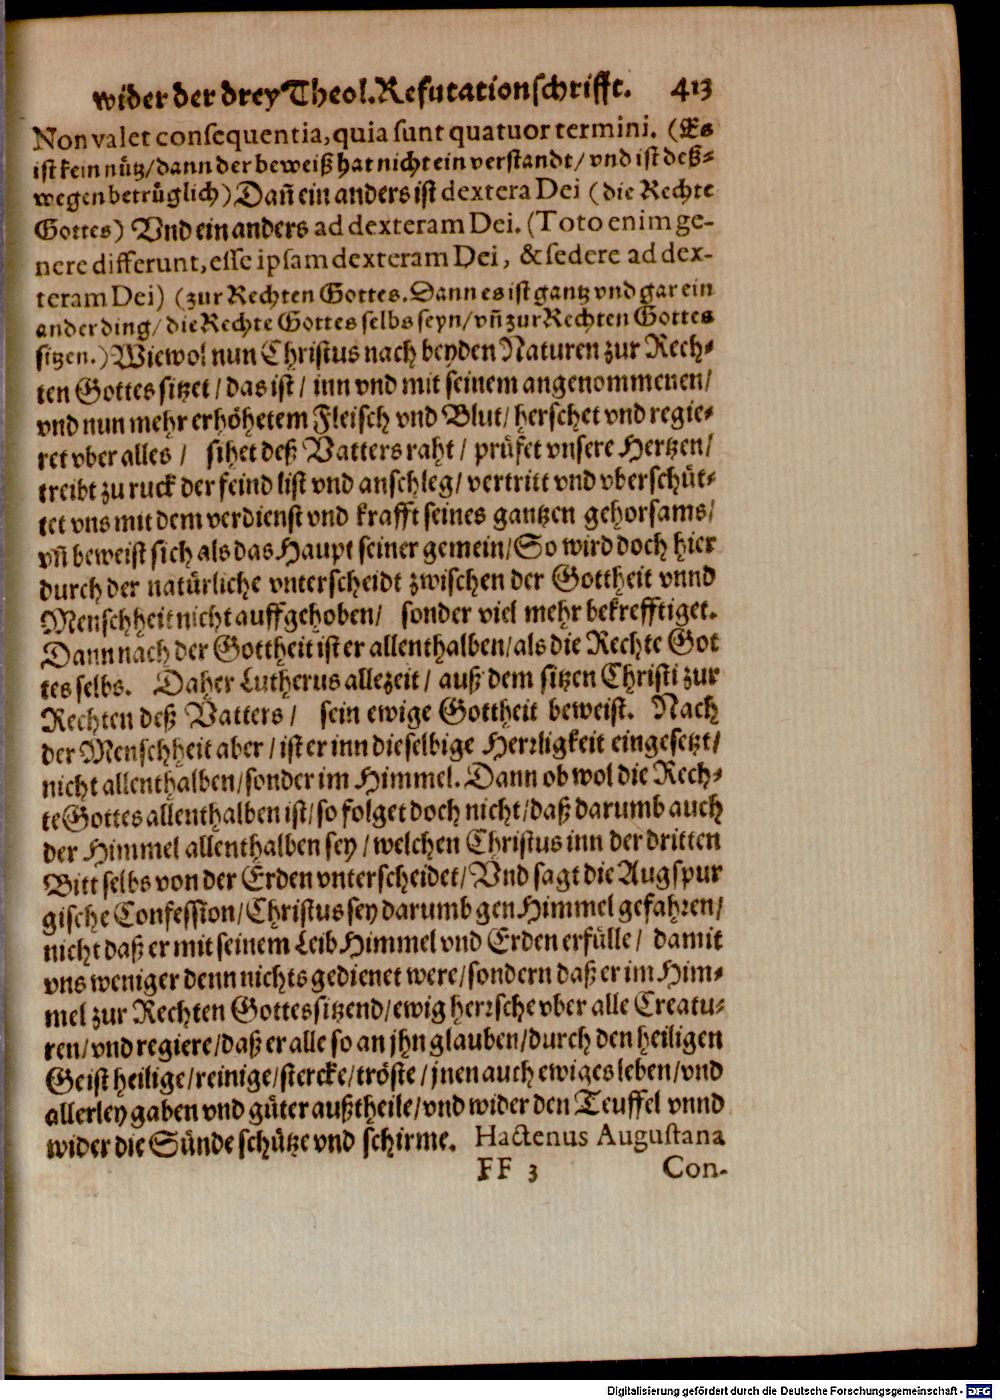 wider der drey Theol. Refutationschrifft. 413
Non valet consequentia, quia sunt quatuor termini. (Es
ist kein nütz/ dann der beweiß hat nicht ein verstandt/ vnd ist deß-
wegen betrüglich) Dañ ein anders ist dextera Dei (die Rechte
Gottes) Vnd ein anders ad dexteram Dei. (Toto enim ge-
nere differunt, esse ipsam dexteram Dei, & sedere ad dex-
teram Dei) (zur Rechten Gottes. Dann es ist gantz vnd gar ein
ander ding/ die Rechte Gottes selbs seyn/ vñ zur Rechten Gottes
sitzen.) Wiewol nun Christus nach beyden Naturen zur Rech-
ten Gottes sitzet/ das ist/ inn vnd mit seinem angenommenen/
vnd nun mehr erhöhetem Fleisch vnd Blut/ herschet vnd regie-
ret vber alles/ sihet deß Vatters raht/ prüfet vnsere Hertzen/
treibt zu ruck der feind list vnd anschleg/ vertritt vnd vberschüt-
tet vns mit dem verdienst vnd krafft seines gantzen gehorsams/
vñ beweist sich als das Haupt seiner gemein/ So wird doch hier
durch der natürliche vnterscheidt zwischen der Gottheit vnnd
Menschheit nicht auffgehoben/ sonder viel mehr bekrefftiget.
Dann nach der Gottheit ist er allenthalben/ als die Rechte Got
tes selbs. Daher Lutherus allezeit/ auß dem sitzen Christi zur
Rechten deß Vatters/ sein ewige Gottheit beweist. Nach
der Menschheit aber/ ist er inn dieselbige Herrligkeit eingesetzt/
nicht allenthalben/ sonder im Himmel. Dann ob wol die Rech-
te Gottes allenthalben ist/ so folget doch nicht/ daß darumb auch
der Himmel allenthalben sey/ welchen Christus inn der dritten
Bitt selbs von der Erden vnterscheidet/ Vnd sagt die Augspur
gische Confession/ Christus sey darumb gen Himmel gefahren/
nicht daß er mit seinem Leib Himmel vnd Erden erfülle/ damit
vns weniger denn nichts gedienet were/ sondern daß er im Him-
mel zur Rechten Gottes sitzend/ ewig herrsche vber alle Creatu-
ren/ vnd regiere/ daß er alle so an jhn glauben/ durch den heiligen
Geist heilige/ reinige/ stercke/ tröste/ jnen auch ewiges leben/ vnd
allerley gaben vnd güter außtheile/ vnd wider den Teuffel vnnd
wider die Sünde schütze vnd schirme. Hactenus Augustana
FF 3 Con-
Digitalisierung gefördert durch die Deutsche Forschungsgemeinschaft - DFG